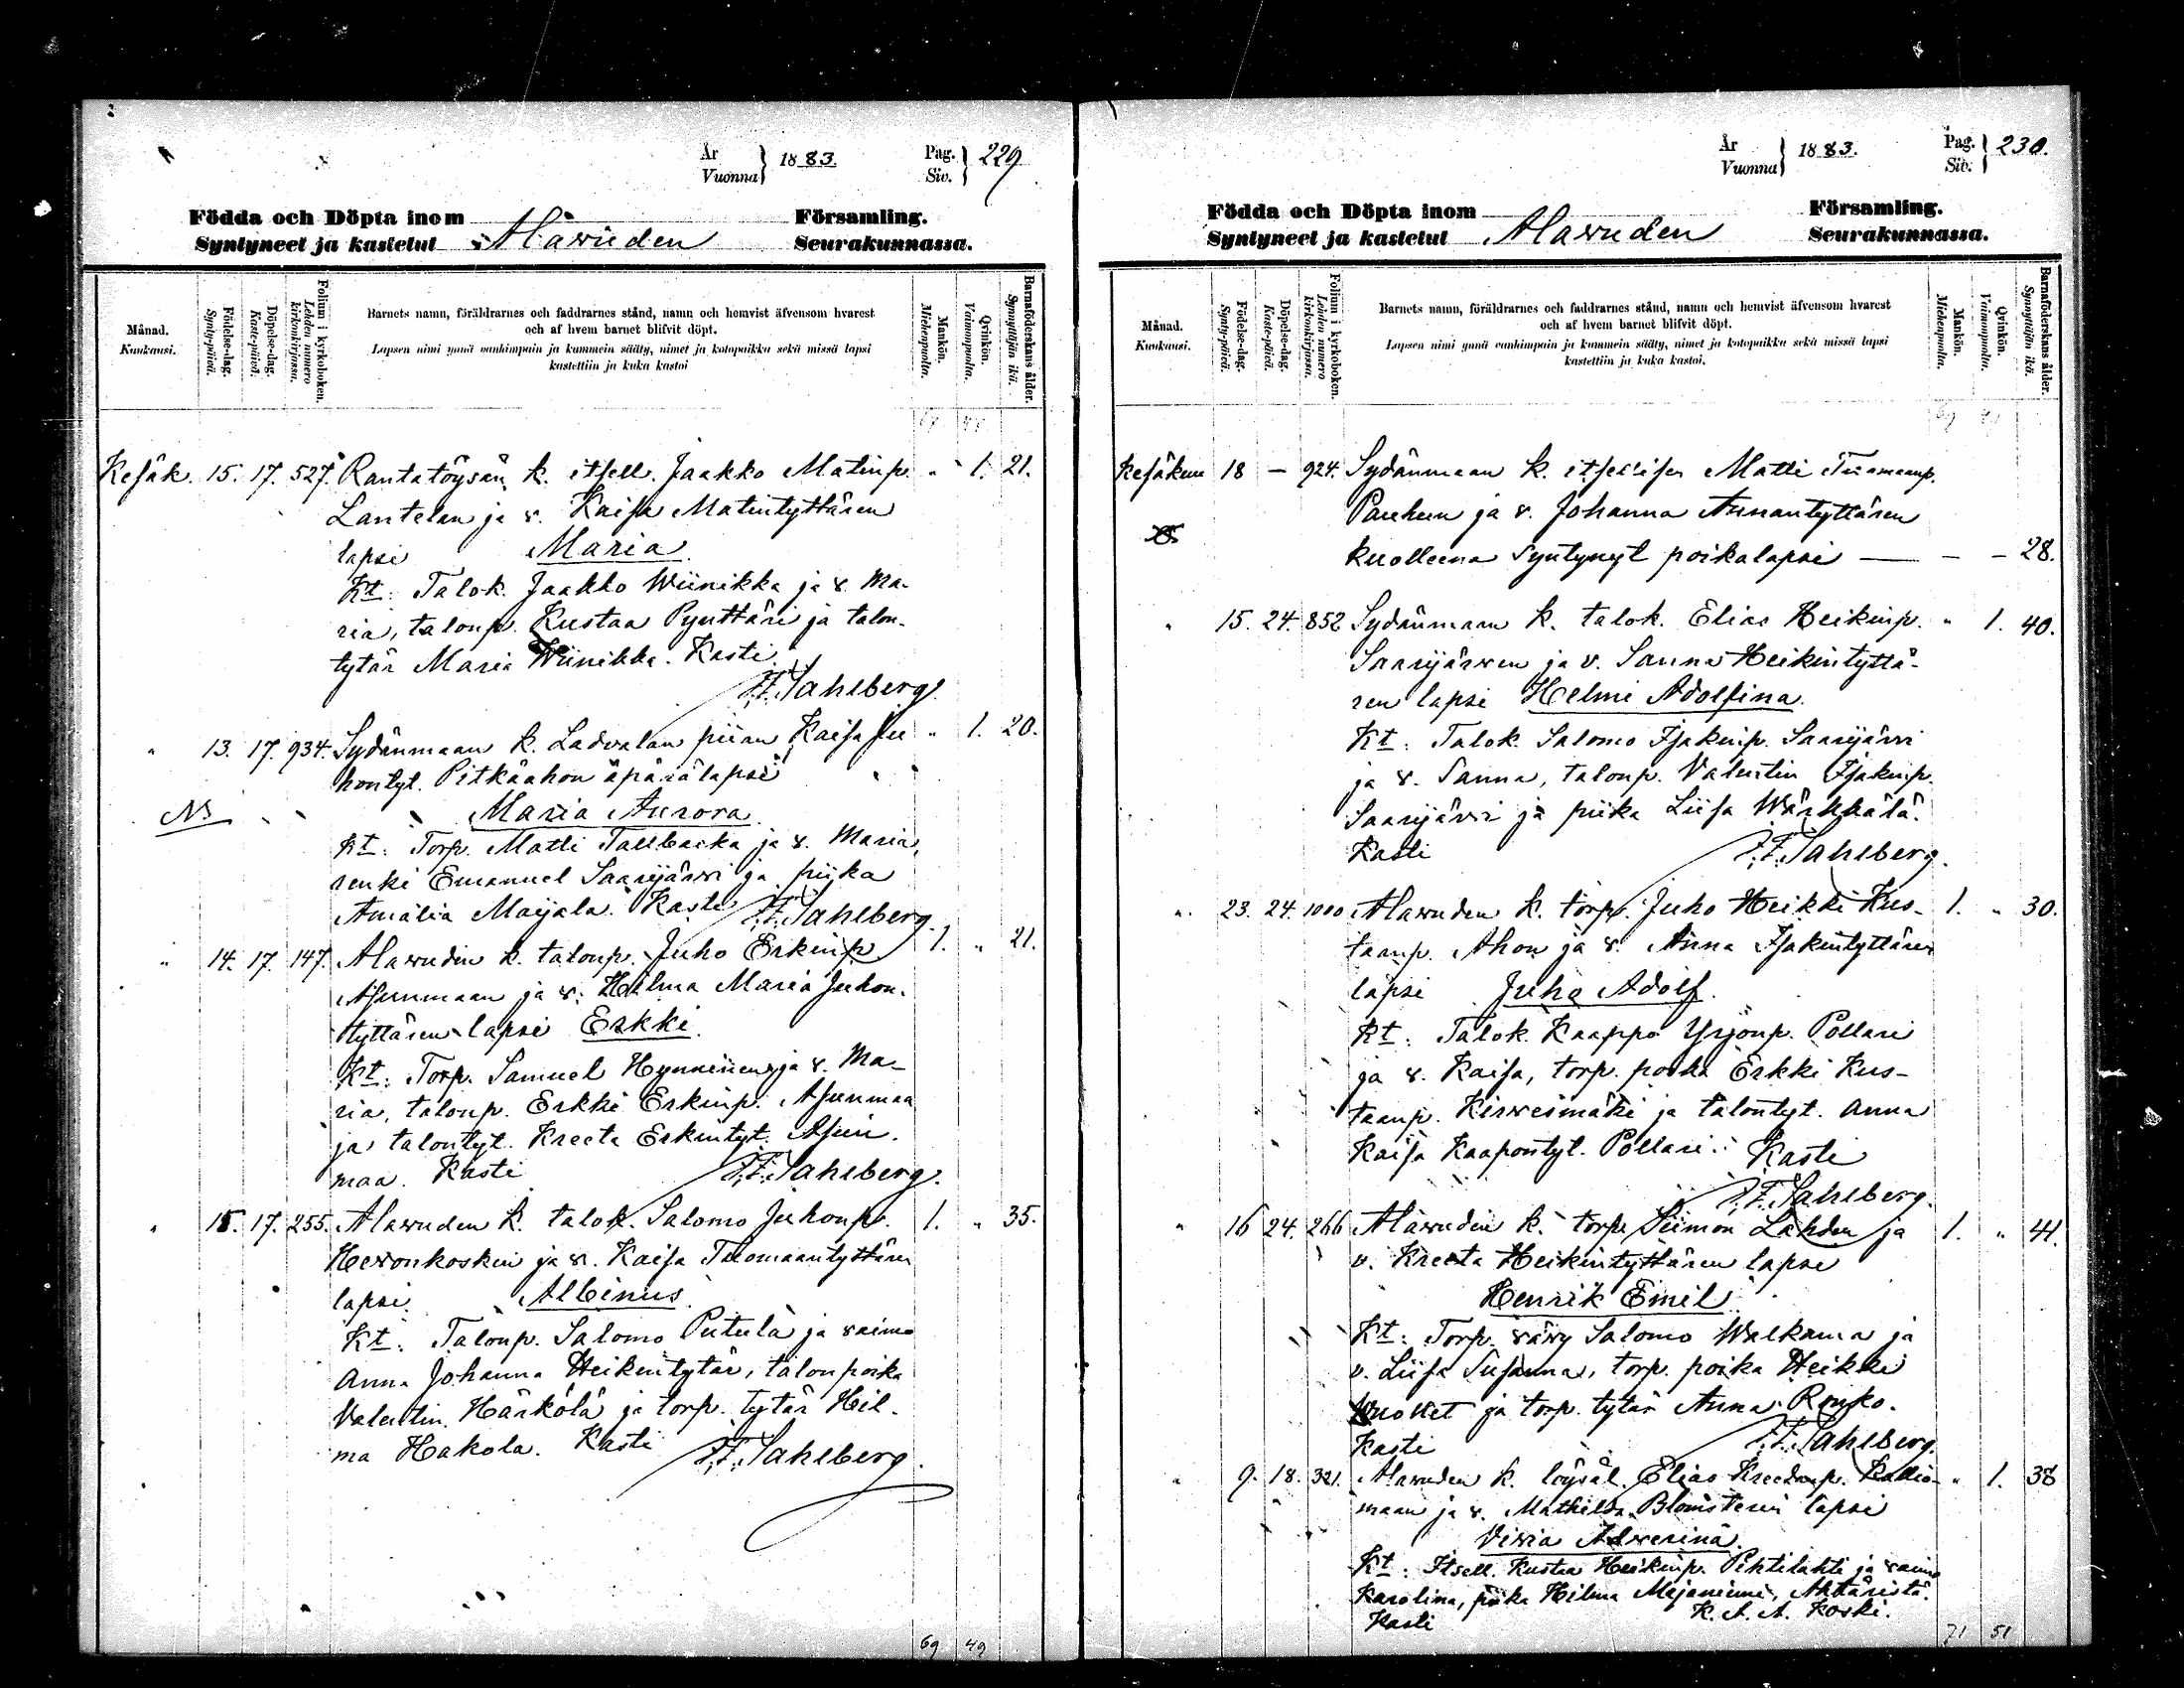 År
Vuonna } 1883.
Pag.
Siv. } 229
Födda och Döpta inom Församling.
Syntyneet ja kastetut Alawuden Seurakunnassa.
Månad.
Kuukausi.
Födelse-dag.
Synty-päivä.
Döpelse-dag.
Kaste-päivä.
Folium i kyrkoboken.
Lehden numero kirkonkirjassa.
Barnets namn, föräldrarnes och faddrarnes stånd, namn och hemvist äfvensom hvarest
och af hvem barnet blifvit döpt.
Lapsen nimi ynnä vanhimpain ja kummein sääty, nimet ja kotopaikka sekä missä lapsi
kastettiin ja kuka kastoi
Mankön.
Miehenpuolta.
Qvinkön.
Vaimonpuolta.
Barnaföderskans ålder.
Synnyttäjän ikä.
67 48
Kesäk. 15. 17. 527. Rantatöysän k. itsell. Jaakko Matinp. " 1. 21.
Lantelan ja v. Kaisa Matintyttären
lapsi Maria
Kt: Talok. Jaakko Wiinikka ja v. Ma-
ria, talonp. Kustaa Pynttäri ja talon-
tytär Maria Wiinikka. Kasti
F.F. Sahlberg.
" 13. 17. 934. Sydänmaan k. Ladvalan piian Kaisa Ju " 1. 20.
hontyt. Pitkäahon äpärälapsi
NB Maria Aurora
Kt: Torp. Matti Tallbacka ja v. Maria,
renki Emanuel Saarijärvi ja piika
Amalia Maijala. Kasti F.F. Sahlberg.
" 14. 17. 147. Alawuden k. talonp. Juho Erkinp. 1. " 21.
Asunmaan ja v. Hilma Maria Juhon-
tyttären lapsi Erkki
Kt: Torp. Samuel Hynninen ja v. Ma-
ria, talonp. Erkki Erkinp. Asunmaa
ja talontyt. Kreeta Erkintyt. Asun-
maa. Kasti F.F. Sahlberg.
" 15. 17. 255. Alawuden k. talok. Salomo Juhonp. 1. " 35.
Hewonkosken ja v. Kaisa Tuomaantyttären
lapsi Albinus
Kt: Talonp. Salomo Putula ja vaimo
Anna Johanna Heikintytär, talonpoika
Valentin Härkölä ja torp. tytär Hil-
ma Hakola. Kasti F.F. Sahlberg.
69 49
År
Vuonna } 1883.
Pag.
Siv. } 230.
Födda och Döpta inom Församling.
Syntyneet ja kastetut Alawuden Seurakunnassa.
Månad.
Kuukausi.
Födelse-dag.
Synty-päivä.
Döpelse-dag.
Kaste-päivä.
Folium i kyrkoboken.
Lehden numero kirkonkirjassa.
Barnets namn, föräldrarnes och faddrarnes stånd, namn och hemvist äfvensom hvarest
och af hvem barnet blifvit döpt.
Lapsen nimi ynnä vanhimpain ja kummein sääty, nimet ja kotopaikka sekä missä lapsi
kastettiin ja kuka kastoi.
Mankön.
Miehenpuolta.
Qvinkön.
Vaimonpuolta.
Barnaföderskans ålder.
Synnyttäjän ikä.
69 49
Kesäkuu 18 — 924. Sydänmaan k. itsellisen Matti Tuomaanp.
ja v. Johanna Annantyttären
kuolleena syntynyt poikalapsi — — — 28.
" 15. 24. 852 Sydänmaan k. talok. Elias Heikinp. " 1. 40.
Saarijärwen ja v. Sanna Heikintyttä-
ren lapsi Helmi Adolfina
Kt: Talok. Salomo Isakinp. Saarijärvi
ja v. Sanna, talonp. Valentin Isakinp.
Saarijärvi ja piika Liisa Wärkkälä.
Kasti F.F. Sahlberg.
" 23. 24. 1000 Alawuden k. torp. Juho Heikki Kus- 1. " 30.
taanp. Ahon ja v. Anna Isakintyttären
lapsi Juho Adolf
Kt: Talok. Kaappo Yrjönp. Pollari
ja v. Kaisa, torp. poika Erkki Kus-
taanp. Kirwesmäki ja talontyt. Anna
Kaisa Kaapontyt. Pollari. Kasti
F.F. Sahlberg.
" 16 24. 266 Alawuden k. torp. Siimon Lahden ja 1. " 41.
v. Kreeta Heikintyttären lapsi
Henrik Emil
Kt: Torp. vävy Salomo Walkama ja
v. Liisa Susanna, torp. poika Heikki
ja torp. tytär Anna Ronko.
Kasti F.F. Sahlberg.
" 9. 18. 321. Alawuden k. löysäl. Elias Kallio- " 1. 38
maan ja v. Mathilda Blomsterin lapsi
Adwerina
Kt: Itsell. Kustaa Heikinp. Pihtilahti ja vaimo
Karolina, piika Hilma Majaniemi, Ähtäristä.
Kasti K. A. A. Koski.
71 51